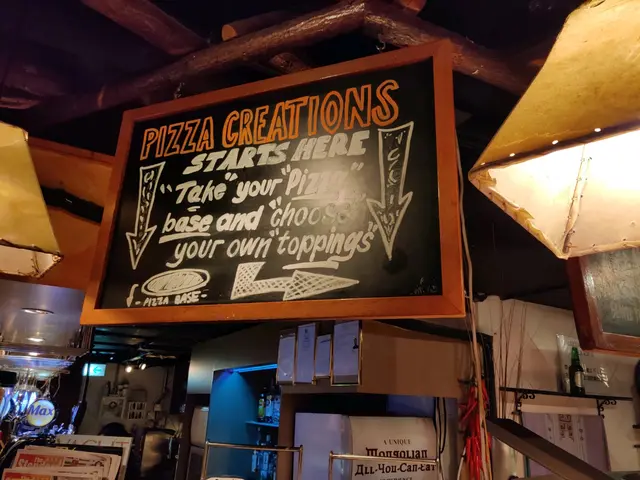 PIZZA CREATIONS
STARTS HERE
"Take" your "Pizza"
base and "choose"
your own "toppings"
- PIZZA BASE -
Max
A UNIQUE
Mongolian
ALL-YOU-CAN-EAT